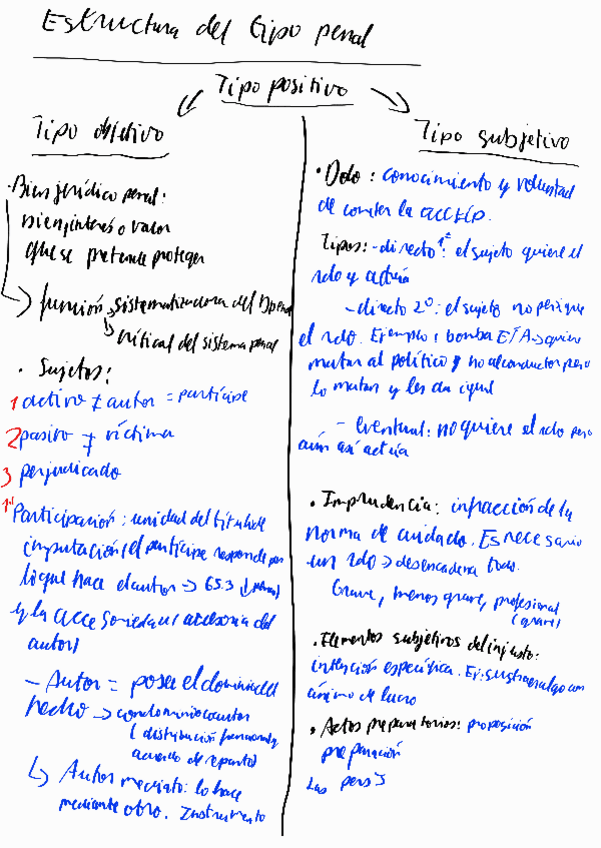 Estructura del tipo penal
Tipo positivo
Tipo objetivo
· Bien jurídico penal:
bien, interés o valor
que se pretende proteger
función → sistematizadora del Dpenal
crítica del sistema penal
· Sujetos:
1 activo ≠ autor = partícipe
2 pasivo ≠ víctima
3 perjudicado
Participación: unidad del título de
imputación (el partícipe responde por
lo que hace el autor → 65.3
y la acce
autor)
– Autor = posee el dominio del
hecho → condominio coautor
(distribución funcional y
acuerdo de reparto)
↳ Autor mediato: lo hace
mediante otro. Instrumento
Tipo subjetivo
· Dolo: conocimiento y voluntad
de cometer la
Tipos: – directo 1º: el sujeto quiere el
rdo y actúa
– directo 2º: el sujeto no
el rdo. Ejemplo: bomba ETA → quiere
matar al político y no al conductor pero
lo matan y les da igual
– eventual: no quiere el rdo pero
aún así actúa
· Imprudencia: infracción de la
norma de cuidado. Es necesario
un rdo → desencadena
Grave, menos grave, profesional
(grave)
· Elementos subjetivos del injusto:
intención específica. Ej: sustraer algo con
ánimo de lucro
· Actos preparatorios: proposición
preparación
Las